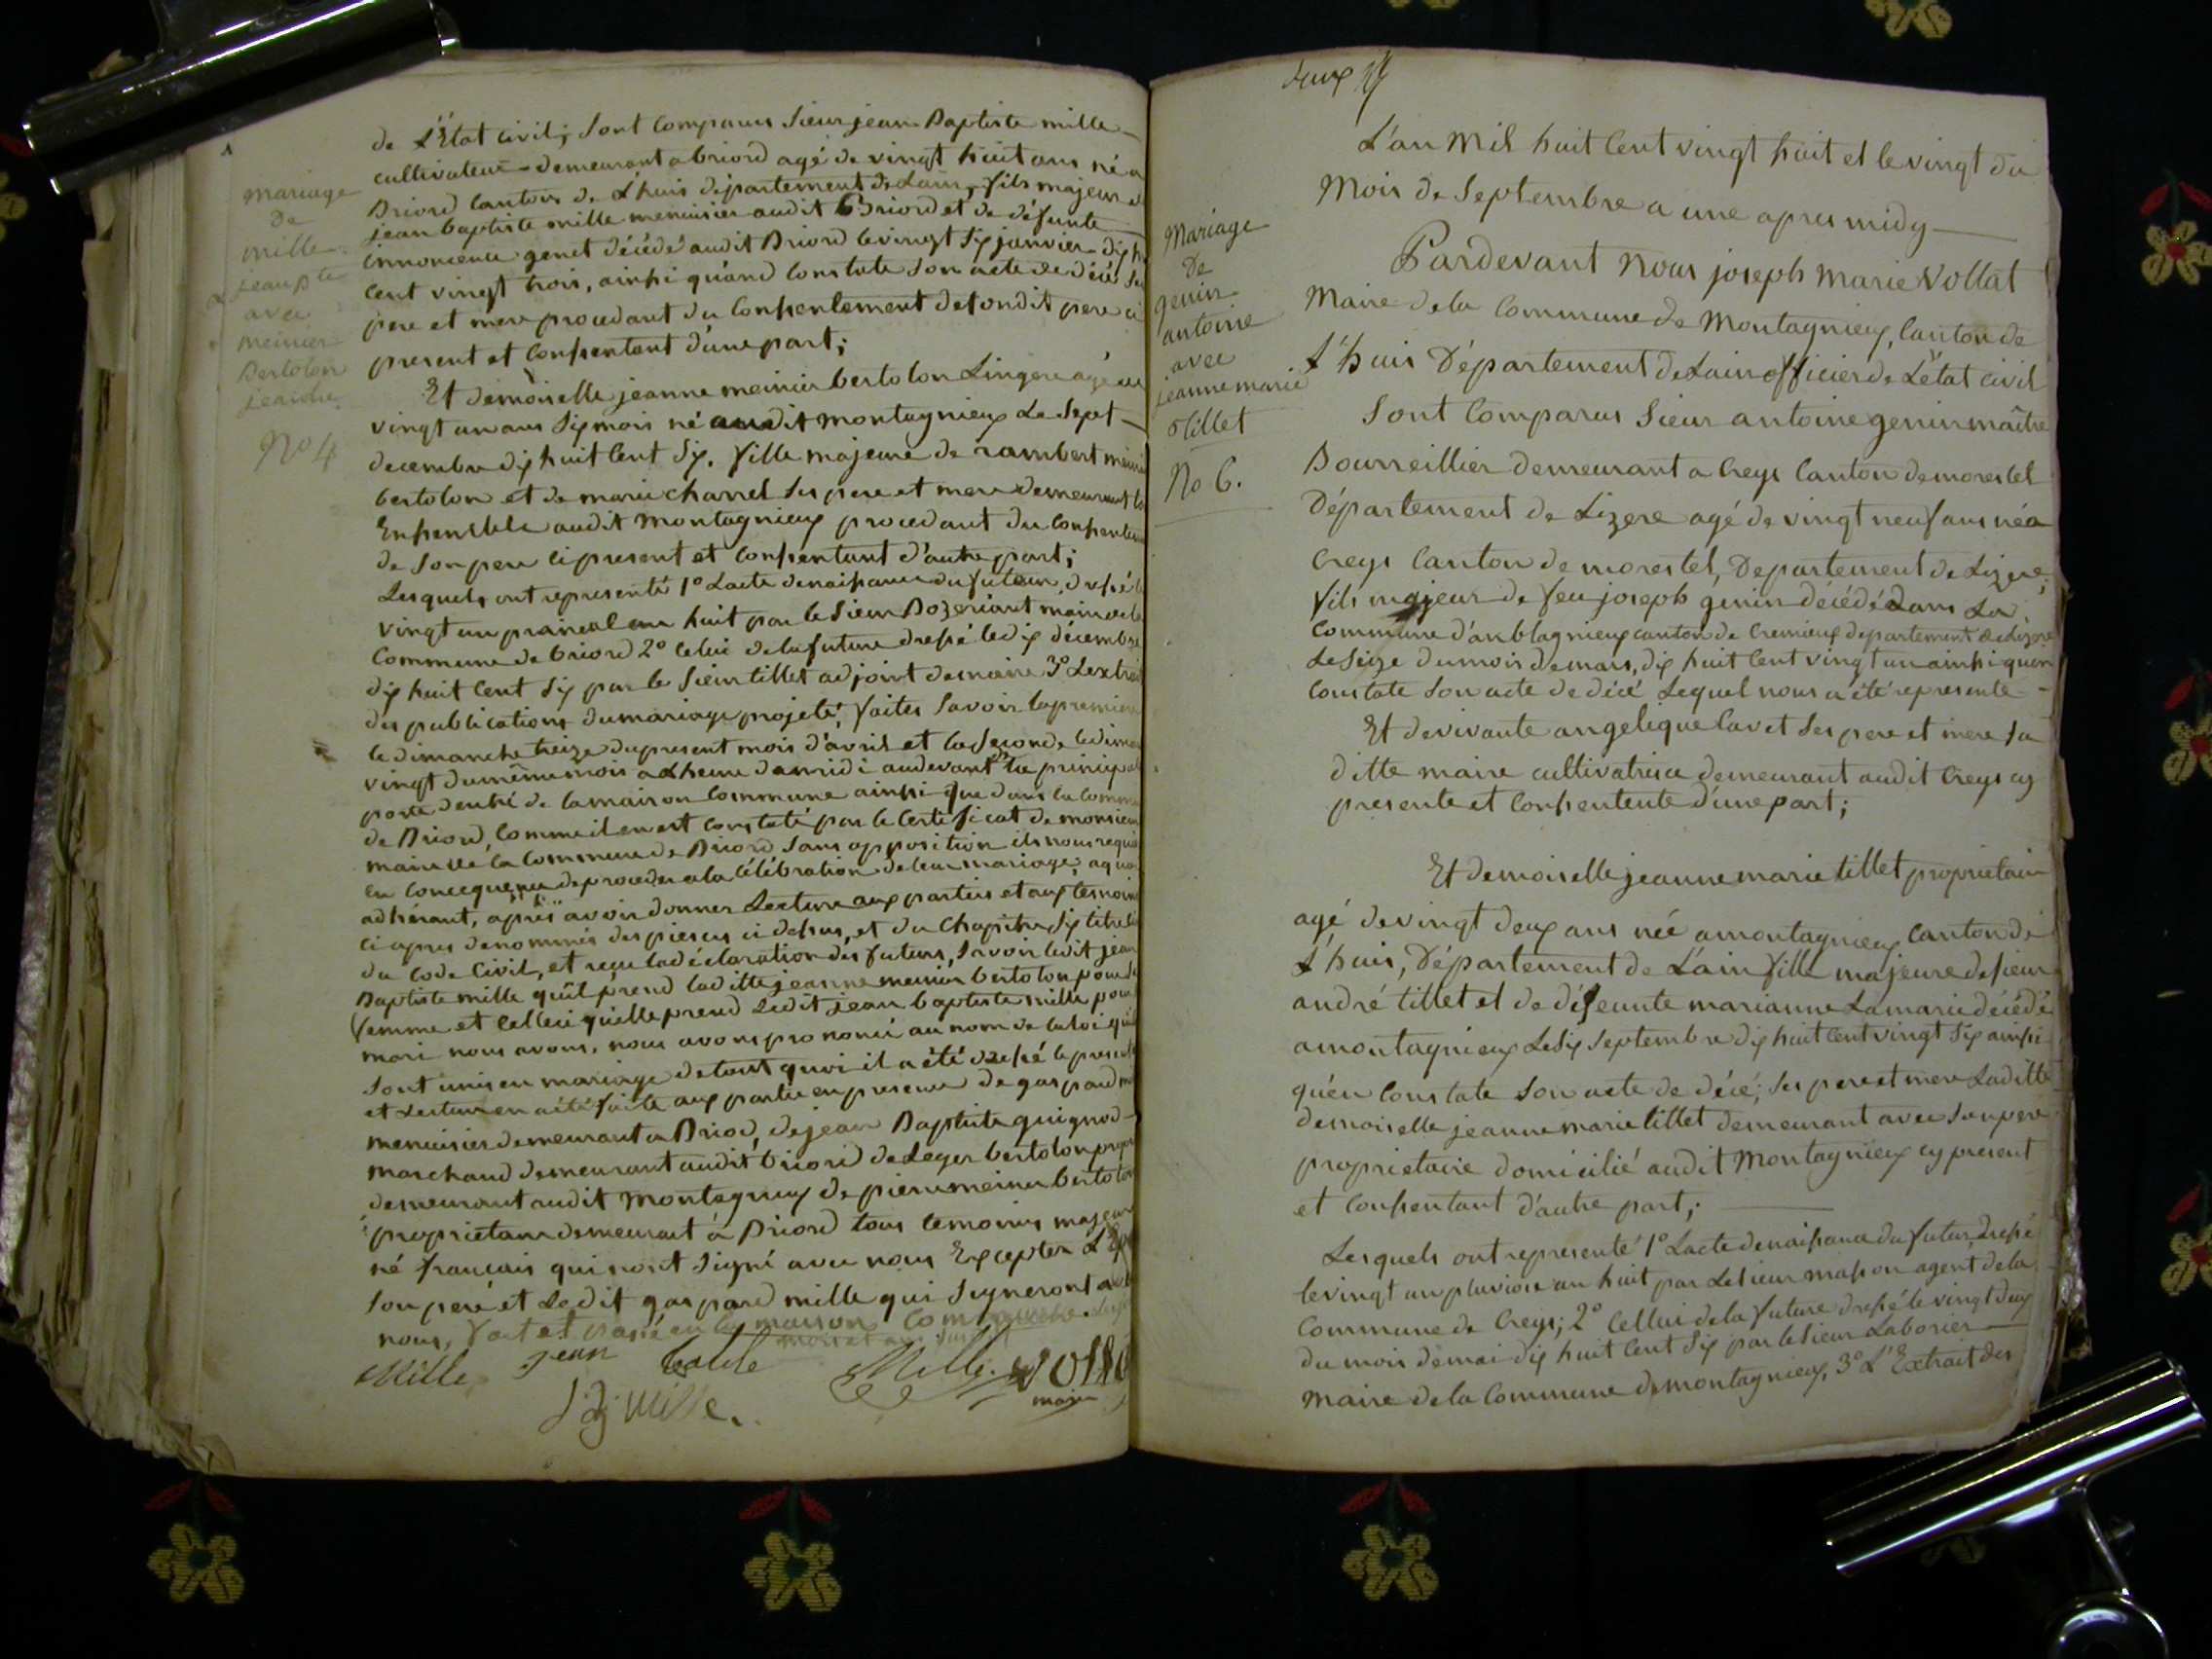 de L'État civil; sont comparus sieur jean Baptiste mille
cultivateur demeurant a briord agé de vingt huit ans né a
Briord canton de L'huis département de Lain, fils majeur de
jean baptiste mille menuisier audit Briord et de défunte
innoncence genet décédé audit Briord le vingt six janvier dix h
cent vingt trois, ainsi quand constate son acte de décé ses
pere et mere procedant du consentement de sondit pere ci
present et consentent d'une part;
Et demoiselle jeanne meinier bertolon Lingere agé de
vingt un ans six mois né audit montagnieux Le sept
decembre dix huit cent six. fille majeure de rambert meini
bertolon et de marie charrel ses pere et mere demeurant
Ensemble audit Montagnieux procedant du consentem
de son pere ci present et consentant d'autre part;
Lesquels ont representé 1° Lacte denaissance du futeur, dressé l
vingt un prairial an huit par le sieur Bozeriant maire de la
commune de briord 2° celui de la future dressé le dix décembre
dix huit cent six par le sieur tillet adjoint demaire 3° Lextrai
des publications du mariage projeté, faites savoir la premiere
le dimanche treize du present mois d'avril et la seconde le diman
vingt du même mois a Lheure de midi audevant de la principal
porte dentré de la maison commune ainsi que dans la commu
de Briord, comme il en est constaté par le certificat de monsieur
maire de la commune de Briord sans opposition ils nous requis
en concequence de proceder a la célébration de leur mariage, a quoi
adhérant, après avoir donner Lecture aux parties et aux temoins
ci apres denommés des pieces ci dessus, et du chapitre six titre
du code civil, et reçu la déclaration des futurs, savoir ledit jean
Baptiste mille qu'il prend laditte jeanne meinier bertolon pour sa
femme et celleci quelle prend Ledit jean baptiste mille pour
mari nous avons, nous avons prononcé au nom de la loi quil
sont unis en mariage de tout quoi il a été dressé le present
et Lecture en a été faite aux partie en presence de gaspard mi
menuisier demeurant a Briod, de jean Baptiste guignod
marchand demeurant audit briord de Leger bertolon propri
demeurant audit montagnieux de pierre meinier bertolon
proprietaire demeurant à Briord tous temoins majeur
né francais qui nont signé avec nous Excepter L'Epoux
son pere et Ledit gaspard mille qui signeront avec
nous, fait et passé en la maison commune
mois et an susdit
Mille jean batiste Mille. Vollat
maire
J B Mille.
Mariage
De
mille
jean Bte
avec
meinier
Bertolon
jeanne
No 4
deux
L'an Mil huit Cent vingt huit et le vingt du
Mois de Septembre a une apres midy
Pardevant Nous joseph Marie Vollat
Maire de la Commune de Montagnieux, Canton de
L'huis Département de Lain officier de L'état civil
Sont Comparus Sieur antoine genin maître
Bourreillier demeurant a Creys Canton de morestel
Département de Lizere agé de vingt neuf ans né a
Creys Canton de morestel, Departement de Lizere,
fils majeur de feu joseph genin décédé dans La
Commune d'anblagnieux canton de Cremieux departement de Lizere
Le Seize dumois demars, dix huit Cent vingt un ainsi quen
constate son acte de décé Lequel nous a été representé
Et devivante angelique Cavet ses pere et mere sa
ditte maire cultivatrice demeurant audit Creys cy
presente et consentente d'une part;
Et demoiselle jeanne marie tillet proprietaire
agé de vingt deux ans née a montagnieux Canton de
L'huis, Département de L'ain fille majeure desieur
andré tillet et de défeunte marianne Lamarie décédé
a montagnieux Le six septembre dix huit Cent vingt six ainsi
qu'en Constate son acte de décé; ses pere et mere Laditte
demoiselle jeanne marie tillet demeurant avec son pere
proprietaire domicilié audit Montagnieux cy present
et consentant d'autre part;
Lesquels ont representé 1° Lacte denaissance du futur, dressé
le vingt un pluviose an huit par Lesieur masson agent dela
Commune de Creys; 2° Cellui de la future dressé le vingt deux
du mois demai dix huit Cent Six par le Sieur Laborier
Maire de la Commune de montagnieux, 3° L'Extrait des
Mariage
De
genin
antoine
avec
jeanne marie
tillet
No 6.